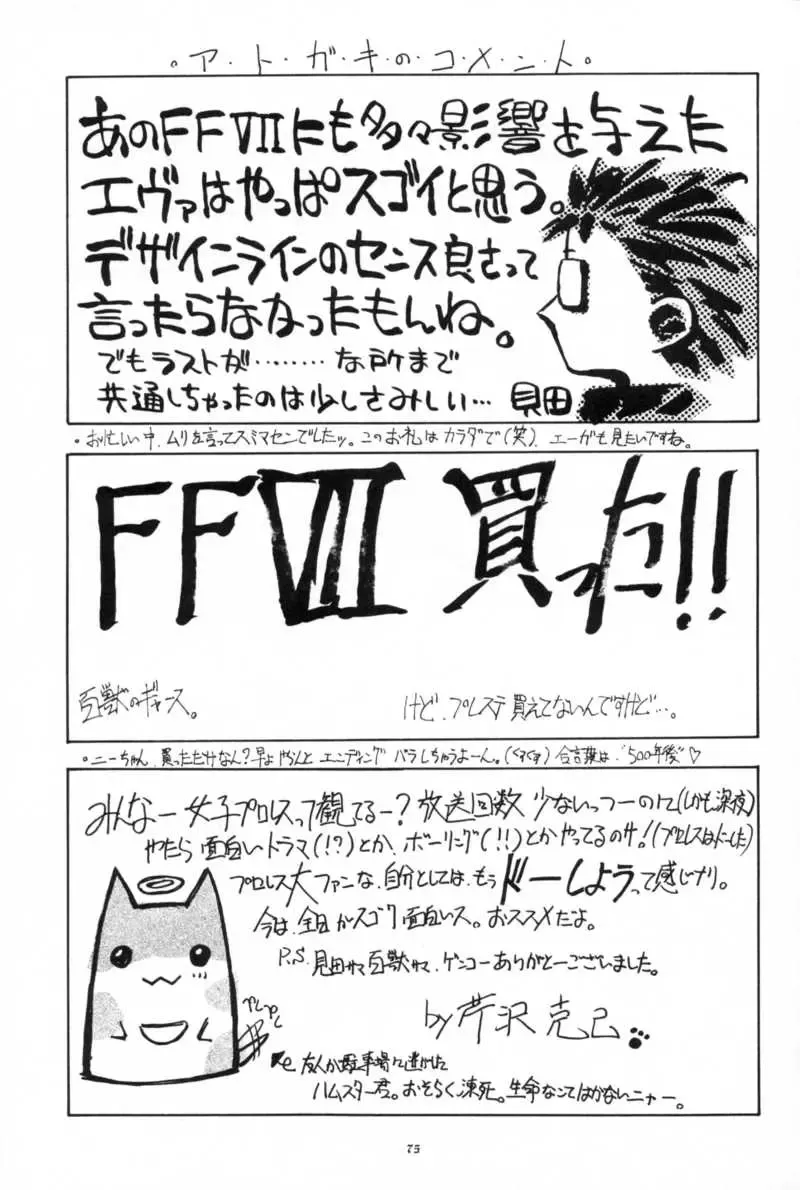 。ア・ト・ガ・キ・の・コ・メ・ン・ト。
あのFFⅦにも多々影響を与えた
エヴァはやっぱスゴイと思う。
デザインラインのセンス良さって
言ったらなかったもんね。
でもラストが………な所まで
共通しちゃったのは少しさみしい… 見田
・お忙しい中、ムリを言ってスミマセンでしたッ。このお礼はカラダで(笑)、エーガも見たいですね。
FFⅦ 買った!!
百獣のギャース。
けど、プレステ買えてないんですけど…。
・ニーちゃん、買っただけなん?早よやらんと エンディング バラしちゃうよーん。(くすくす) 合言葉は"500年後"♡
みんなー 女子プロレスって観てるー? 放送回数 少ないっつーのに(しかも深夜)
やたら 面白いドラマ(!?)とか、ボーリング(!!)とかやってるのサ!(プロレスはどーした)
プロレス大ファンな、自分としては、もう ドーしようって感じナリ。
今は、全日がスゴク面白いス。おススメだよ。
P.S. 見田サマ 百獣サマ、ゲンコーありがとーございました。
by 芹沢 克己
友人が駐車場に逃がした
ハムスター君。おそらく、凍死。生命なんてはかないニャー。
75